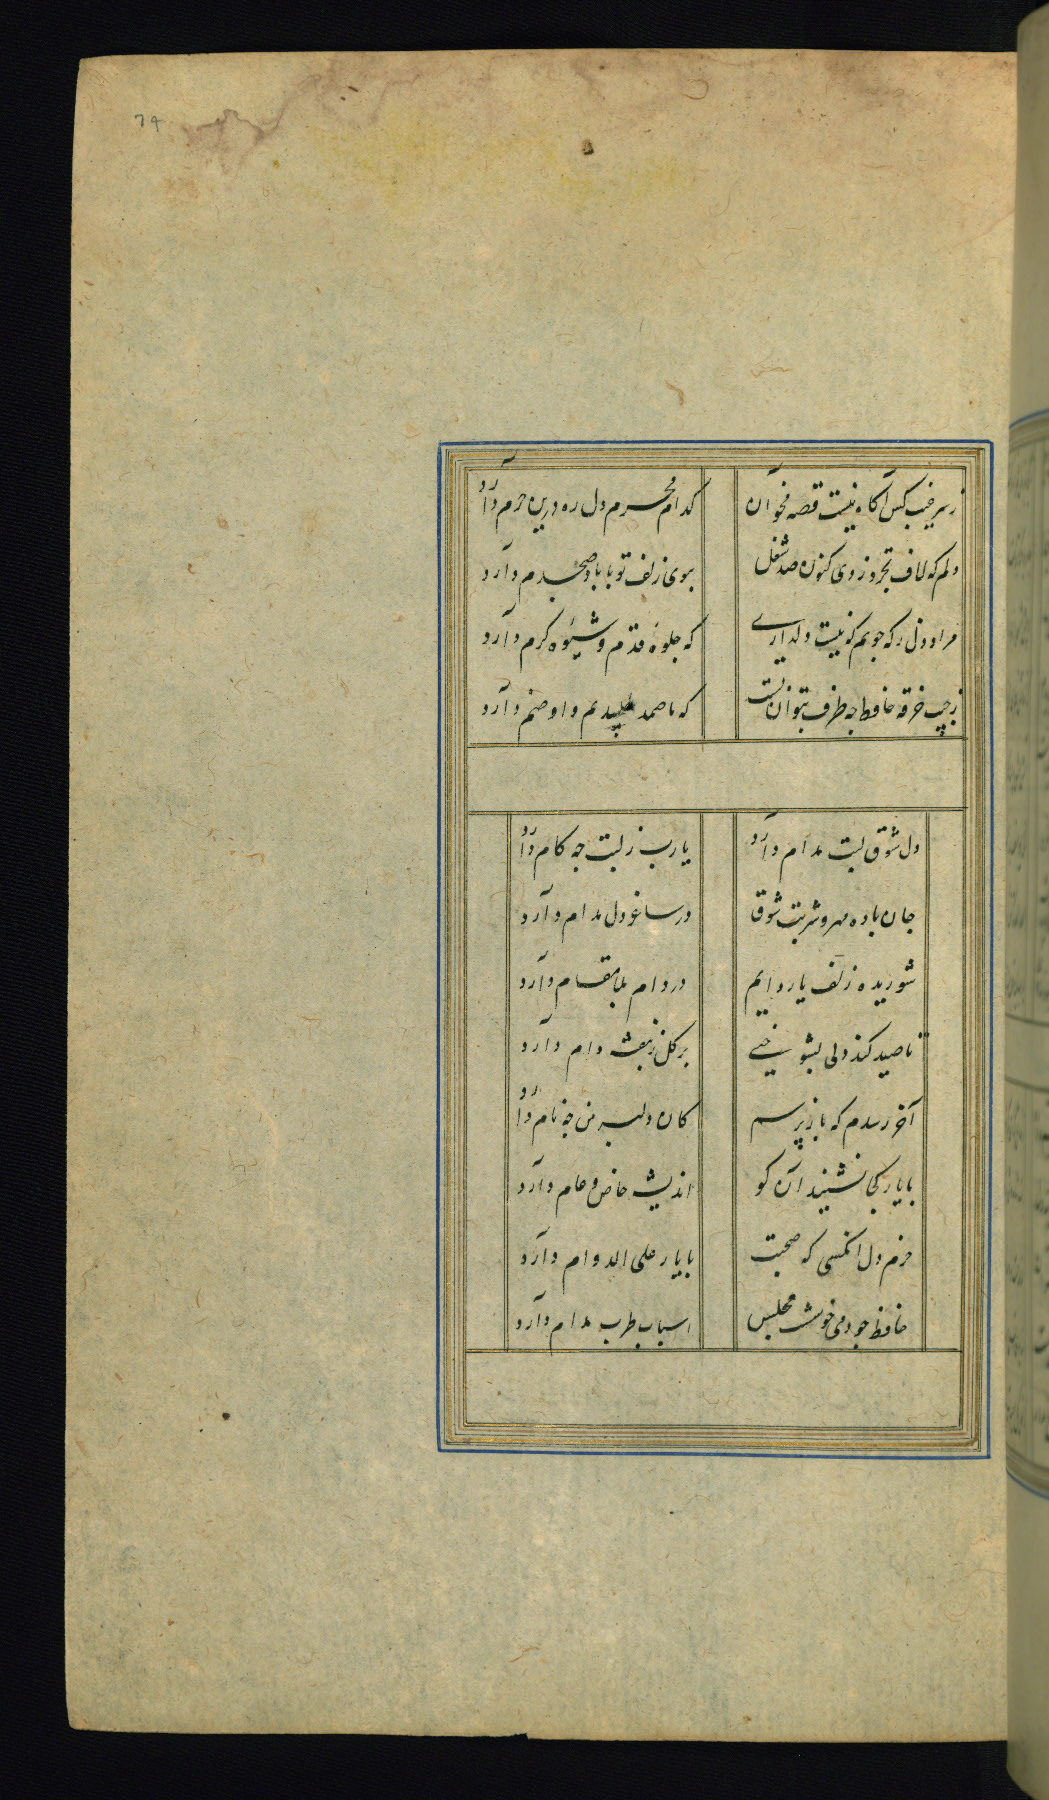 ز سر غیب کس آگاه نیست قصه مخوان کدام محرم دل ره درین حرم دارد
دلم که لاف تجرد زدی کنون صد شغل ببوی زلف تو با باد صبحدم دارد
مراد دل ز که جویم که نیست دلداری که جلوهٔ قدم و شیوه کرم دارد
ز جیب خرقه حافظ چه طرف بتوان بست که ما صمد طلبیدیم و او صنم دارد
دل شوق لبت مدام دارد یا رب ز لبت چه کام دارد
جان باده مهر و شربت شوق در ساغر دل مدام دارد
شوریده زلف یار دایم در دام بلا مقام دارد
تا صید کند دلی بشوخی بر گل ز بنفشه دام دارد
آخر رسدم که باز پرسم کان دلبر من چه نام دارد
با یار کجا نشیند آن کو اندیشه خاص و عام دارد
خرم دل آنکسی که صحبت با یار علی الدوام دارد
حافظ چو دمی خوشست مجلس اسباب طرب مدام دارد